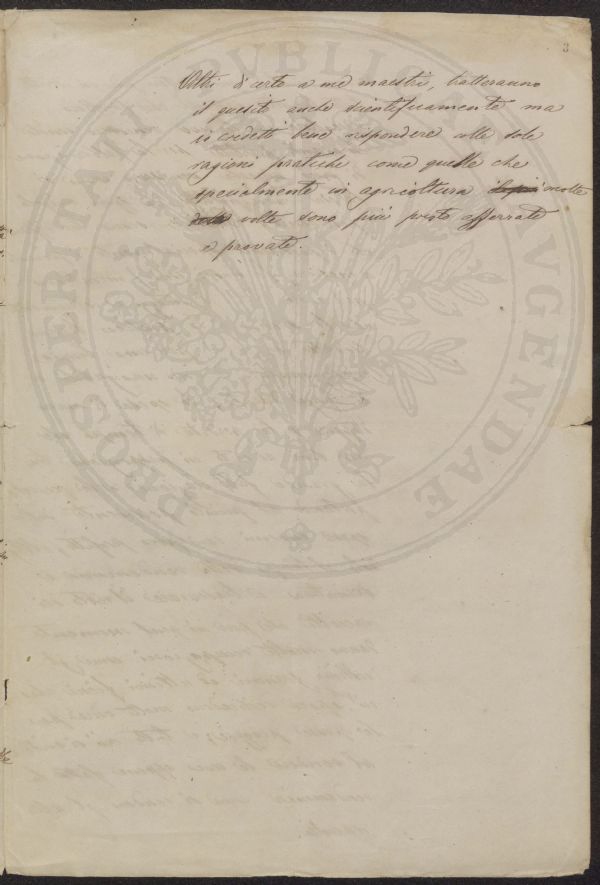 3
Altri di certo a me maestri, tratteranno
il quesito anche scientificamente ma
io credetti bene rispondere alle sole
ragioni pratiche come quelle che
specialmente in agricoltura molte
volte sono più presto afferrate
e provate.
PUBLICAE
AUGENDAE
PROSPERITATI